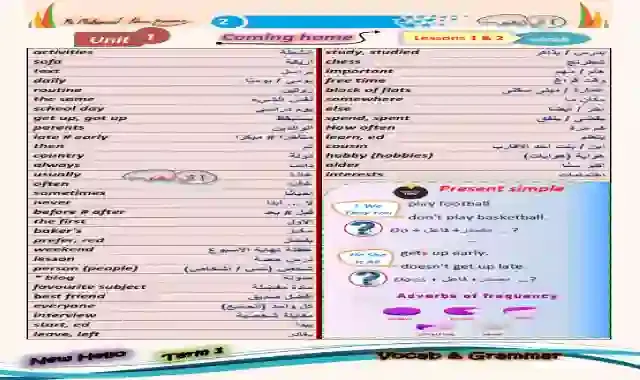 2
Unit 1
Coming home
Lessons 1 & 2
activities أنشطة
sofa أريكة
text
daily يومي / يوميًا
routine روتين
the same نفس الشيء
school day يوم دراسي
get up, got up يستيقظ
parents الوالدين
late # early متأخرًا # مبكرًا
then ثم
country دولة
always دائمًا
usually عادة
often غالبًا
sometimes أحيانًا
never لا ... أبدًا
before # after قبل # بعد
the first الأول
baker's مخبز
prefer, red يفضل
weekend عطلة نهاية الأسبوع
lesson درس / حصة
person (people) شخص (ناس / أشخاص)
* blog مدونة
favourite subject مادة مفضلة
best friend أفضل صديق
everyone كل واحد (الجميع)
interview مقابلة شخصية
start, ed يبدأ
leave, left يغادر
study, studied يدرس / يذاكر
chess شطرنج
important هام / مهم
free time وقت فراغ
block of flats عمارة / مبنى سكني
somewhere مكان ما
else آخر / أيضًا
spend, spent يقضي / ينفق
How often كم مرة
learn, ed يتعلم
cousin ابن / بنت أحد الأقارب
hobby (hobbies) هواية (هوايات)
older أكبر سنًا
interests اهتمامات
Present simple
I We
They You
play football
don't play basketball.
Do + فاعل + مصدر ...?
He She
It
gets up early.
doesn't get up late.
Does + فاعل + مصدر ...?
Adverbs of frequency
New Hello
Term 1
Vocab & Grammar